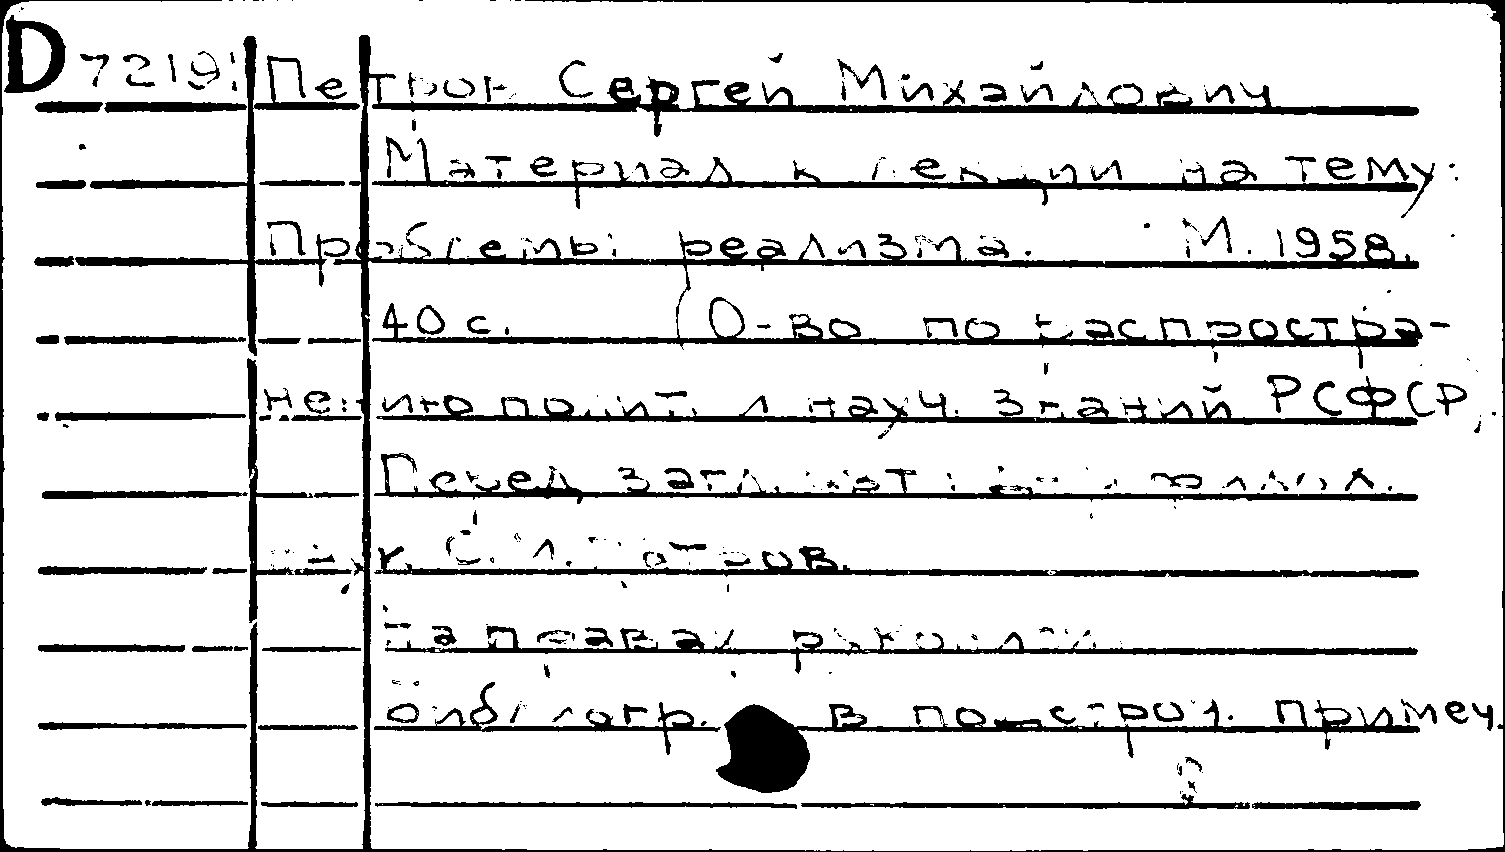 D 7219
Петров Сергей Михайлович
Материал к лекции на тему:
Проблемы реализма. М. 1958.
40 с. (О-во по распростра-
нению полит. и науч. знаний РСФСР,
Перед загл. авт.:
наук С. М. Петров.
На правах рукописи.
Библиогр. в подстроч. примеч.